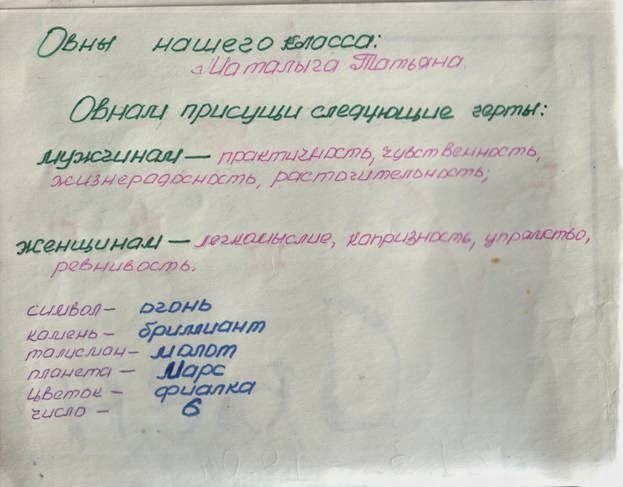 Овны нашего класса:
Маталыга Татьяна.
Овнам присущи следующие черты:
мужчинам — практичность, чувственность,
жизнерадосность, расточительность;
женщинам — легкомыслие, капризность, упрямство,
ревнивость.
символ - огонь
камень - бриллиант
талисман - молот
планета - Марс
цветок - фиалка
число - 6